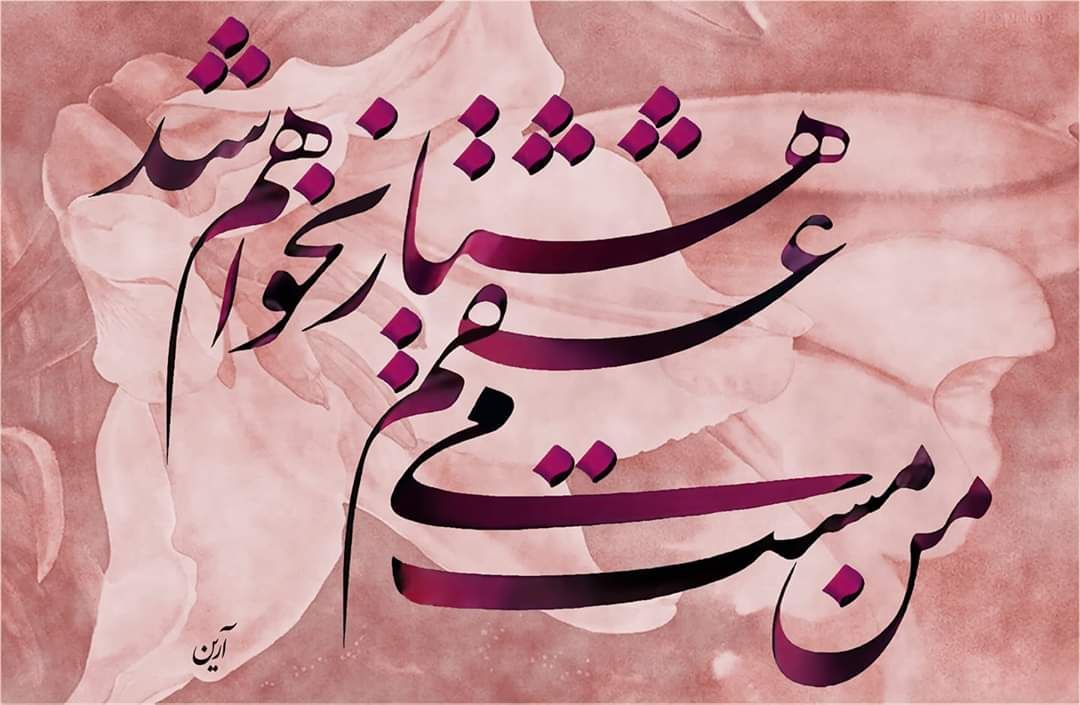 من مست می عشقم
هشیار نخواهم شد
آرین